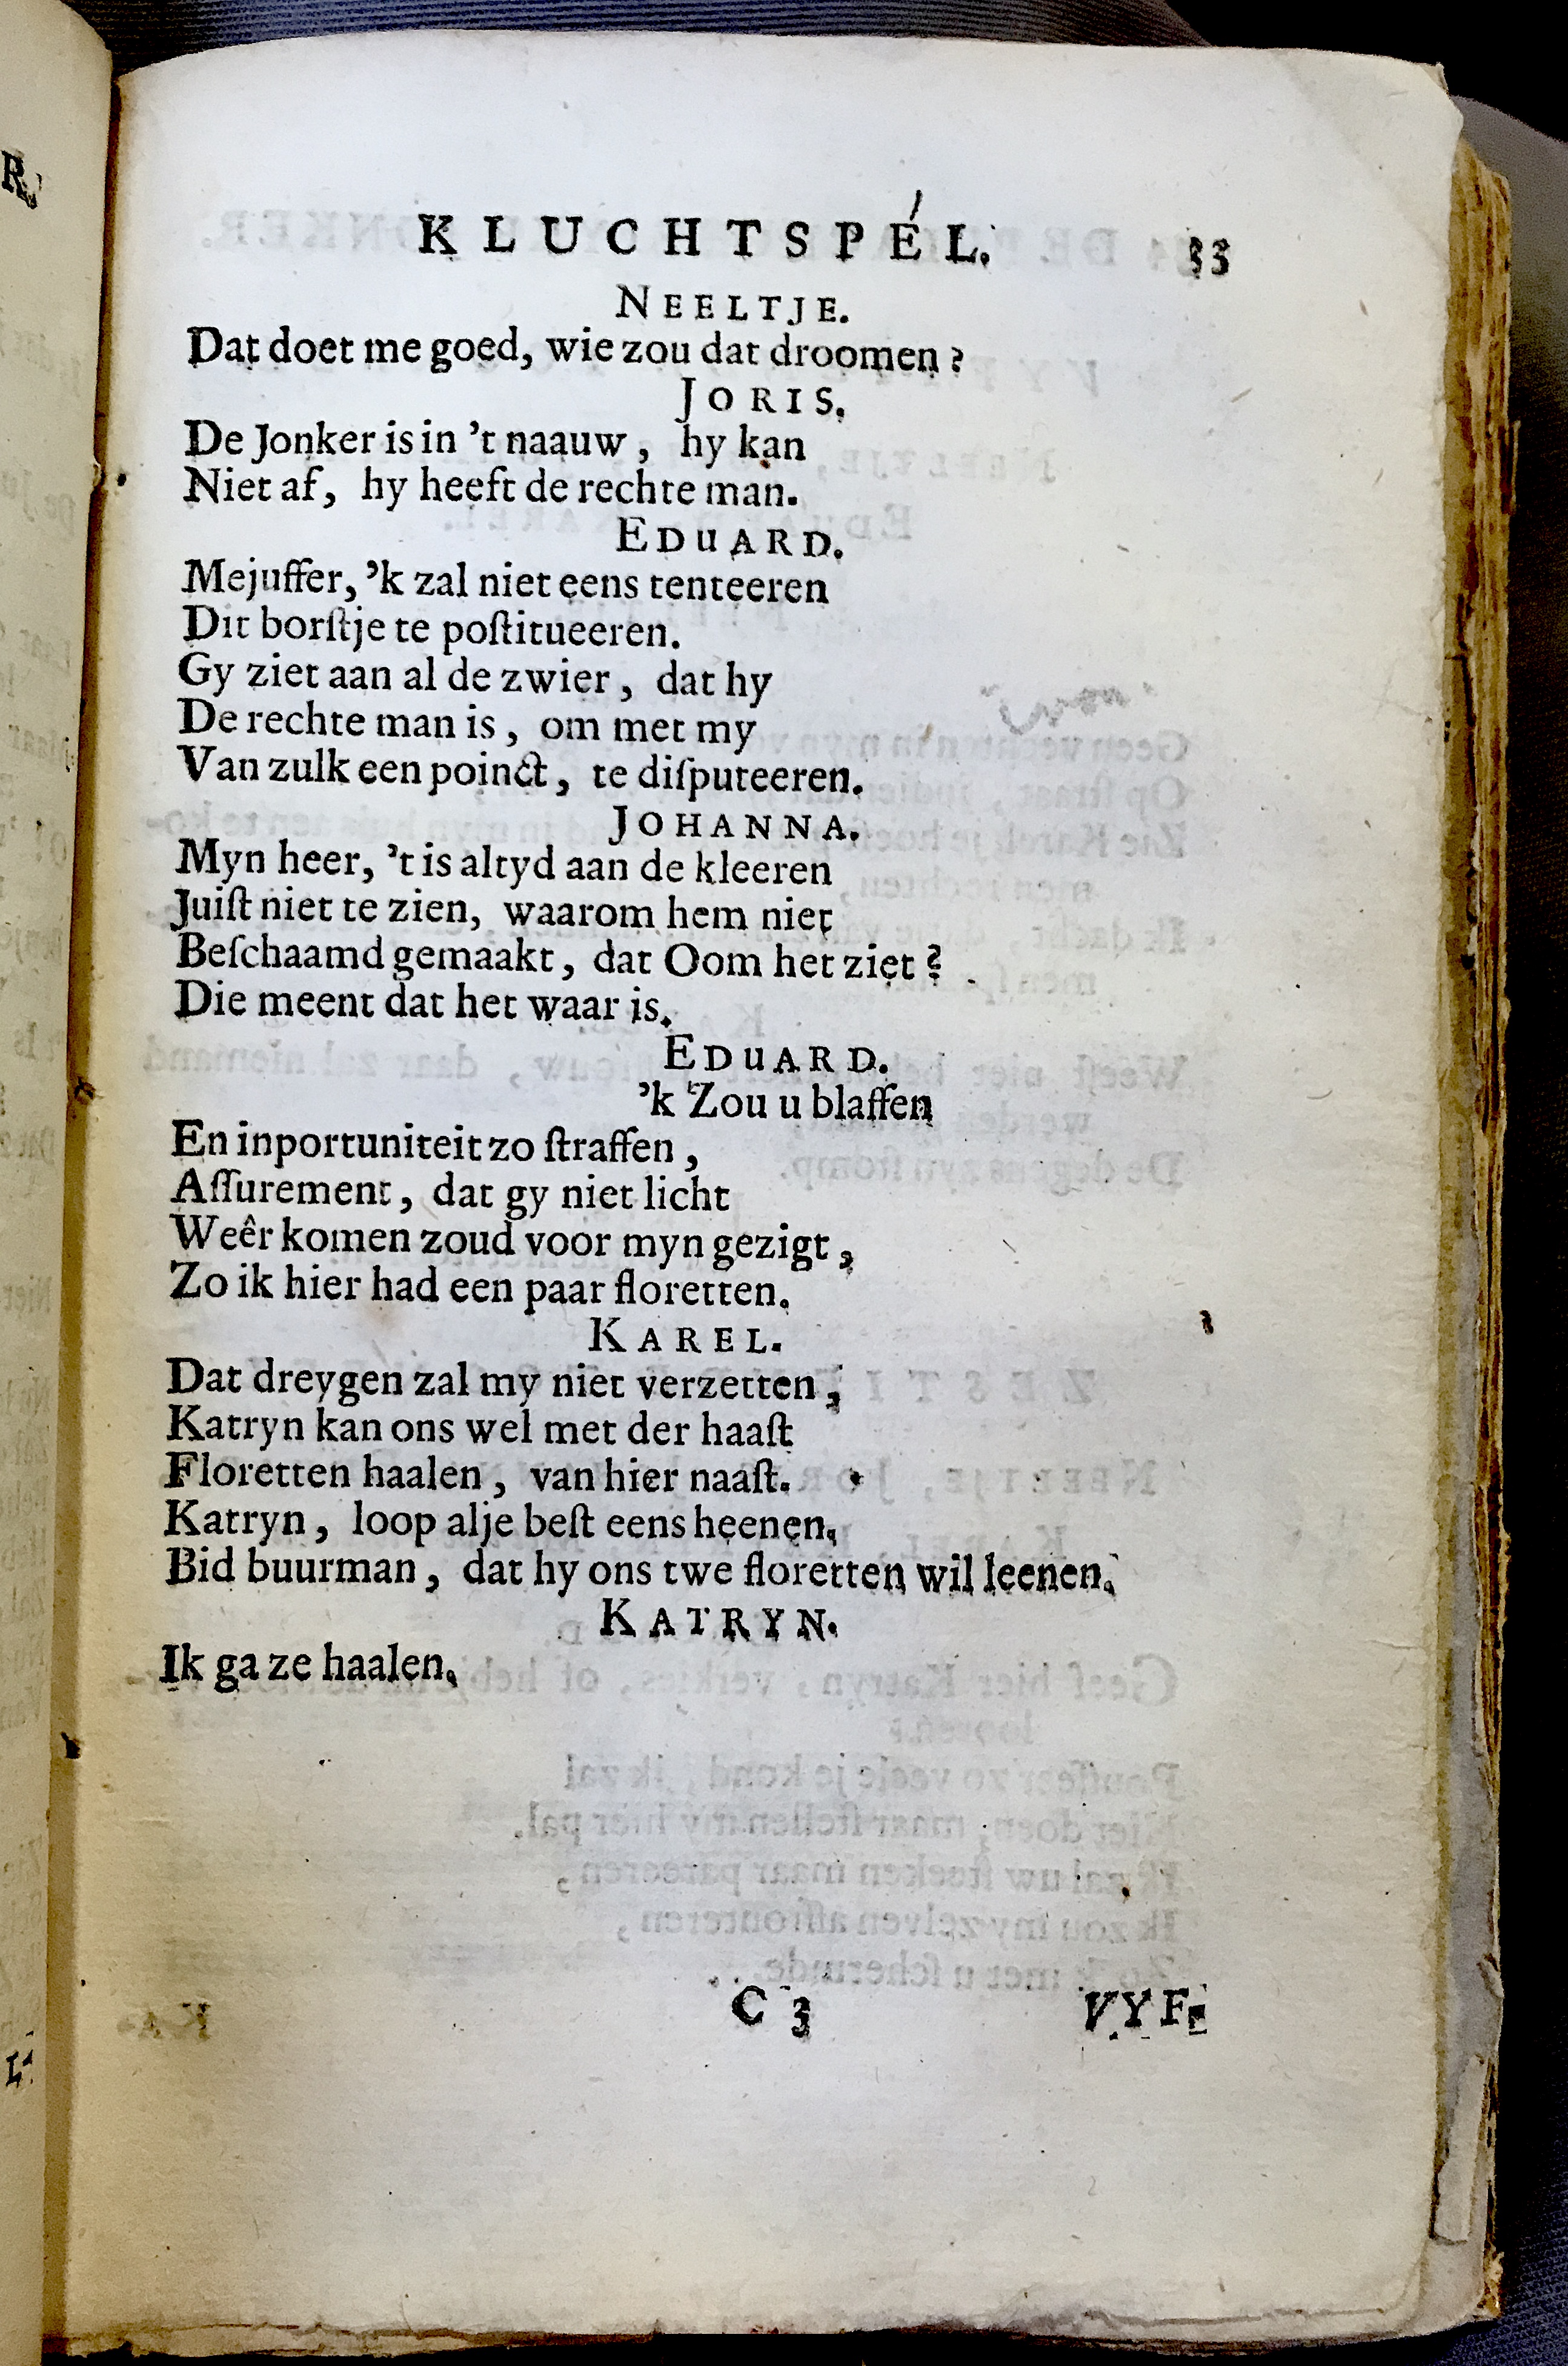 KLUCHTSPÉL. 33
NEELTJE.
Dat doet me goed, wie zou dat droomen?
JORIS.
De Jonker is in 't naauw, hy kan
Niet af, hy heeft de rechte man.
EDUARD.
Mejuffer, 'k zal niet eens tenteeren
Dit borſtje te poſtitueeren.
Gy ziet aan al de zwier, dat hy
De rechte man is, om met my
Van zulk een poinct, te diſputeeren.
JOHANNA.
Myn heer, 't is altyd aan de kleeren
Juiſt niet te zien, waarom hem niet
Beſchaamd gemaakt, dat Oom het ziet?
Die meent dat het waar is.
EDUARD.
'k Zou u blaffen
En inportuniteit zo ſtraffen,
Aſſurement, dat gy niet licht
Weêr komen zoud voor myn gezigt,
Zo ik hier had een paar floretten.
KAREL.
Dat dreygen zal my niet verzetten,
Katryn kan ons wel met der haaſt
Floretten haalen, van hier naaſt.
Katryn, loop alje beſt eens heenen,
Bid buurman, dat hy ons twe floretten wil leenen.
KATRYN.
Ik ga ze haalen.
C 3 VYF-